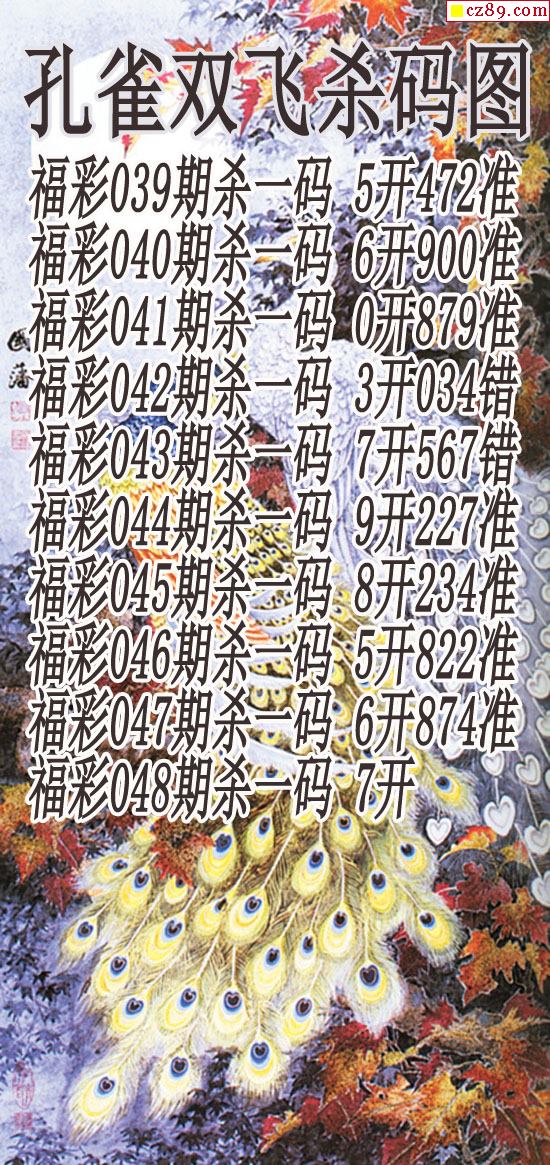 cz89.com
孔雀双飞杀码图
福彩039期杀一码 5开472准
福彩040期杀一码 6开900准
福彩041期杀一码 0开879准
福彩042期杀一码 3开034错
福彩043期杀一码 7开567错
福彩044期杀一码 9开227准
福彩045期杀一码 8开234准
福彩046期杀一码 5开822准
福彩047期杀一码 6开874准
福彩048期杀一码 7开